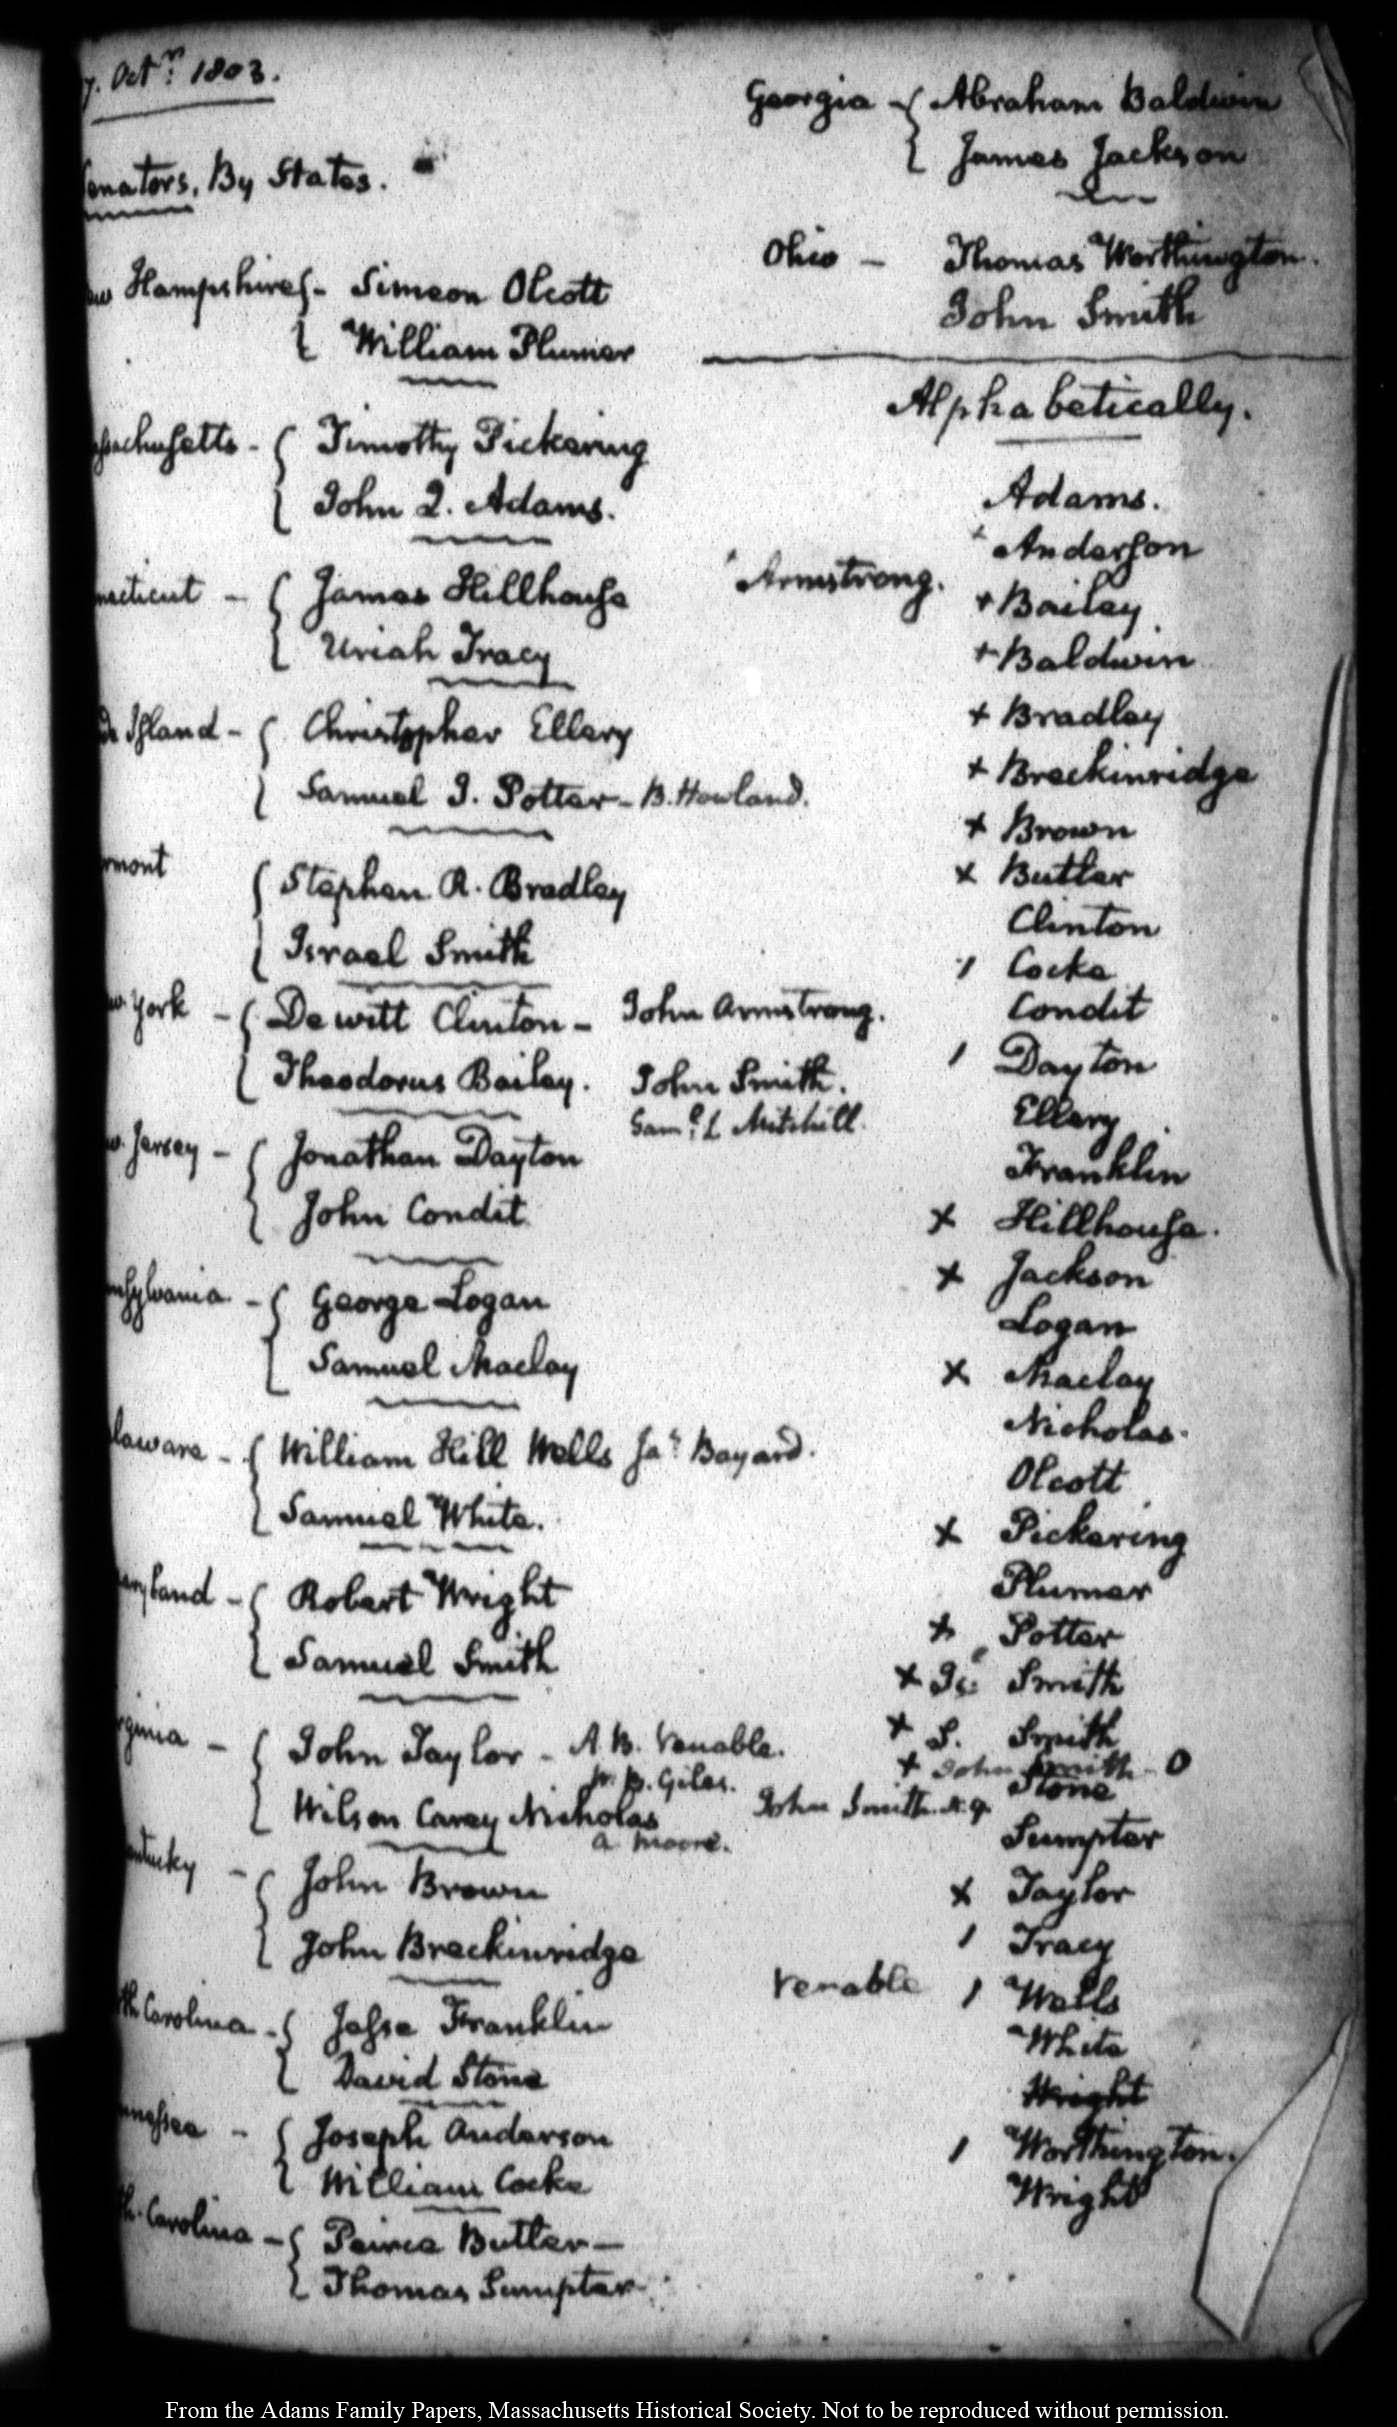 7. Octr. 1803.
Senators, By States.
Hampshire - Simeon Olcott
William Plumer
ssachusetts - Timothy Pickering
John Q. Adams.
necticut - James Hillhouse
Uriah Tracy
de Island - Christopher Ellery
Samuel J. Potter - B. Howland.
rmont Stephen R. Bradley
Israel Smith
w. York - Dewitt Clinton - John Armstrong.
Theodorus Bailey. John Smith.
Saml. L Mitchill.
w. Jersey - Jonathan Dayton
John Condit
nsylvania - George Logan
Samuel Maclay
laware - William Hill Wells Jas. Bayard.
Samuel White.
aryland - Robert Wright
Samuel Smith
rginia - John Taylor - A. B. Venable.
W. B. Giles.
Wilson Carey Nicholas
A. Moore.
ntucky - John Brown
John Breckinridge
th Carolina - Jesse Franklin
David Stone
nnessee - Joseph Anderson
William Cocke
th. Carolina - Peirce Butler -
Thomas Sumpter
Georgia - Abraham Baldwin
James Jackson
Ohio - Thomas Worthington.
John Smith
Alphabetically.
Adams.
+ Anderson
Armstrong.
+ Bailey
+ Baldwin
+ Bradley
+ Breckinridge
+ Brown
x Butler
Clinton
/ Cocke
Condit
/ Dayton
Ellery
Franklin
x Hillhouse.
x Jackson
Logan
x Maclay
Nicholas.
Olcott
x Pickering
Plumer
x Potter
x Is: Smith
x S. Smith
+ John Smith - O
John Smith. N.Y. Stone
Sumpter
x Taylor
/ Tracy
Venable / Wells
White
Wright
/ Worthington.
Wright
From the Adams Family Papers, Massachusetts Historical Society. Not to be reproduced without permission.